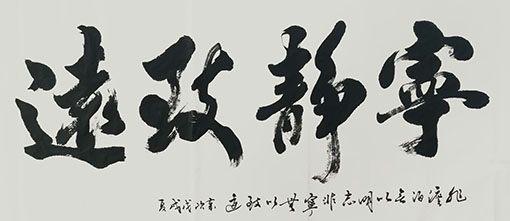 寧靜致遠
非澹泊无以明志非寧無以致遠歲次戊戌夏